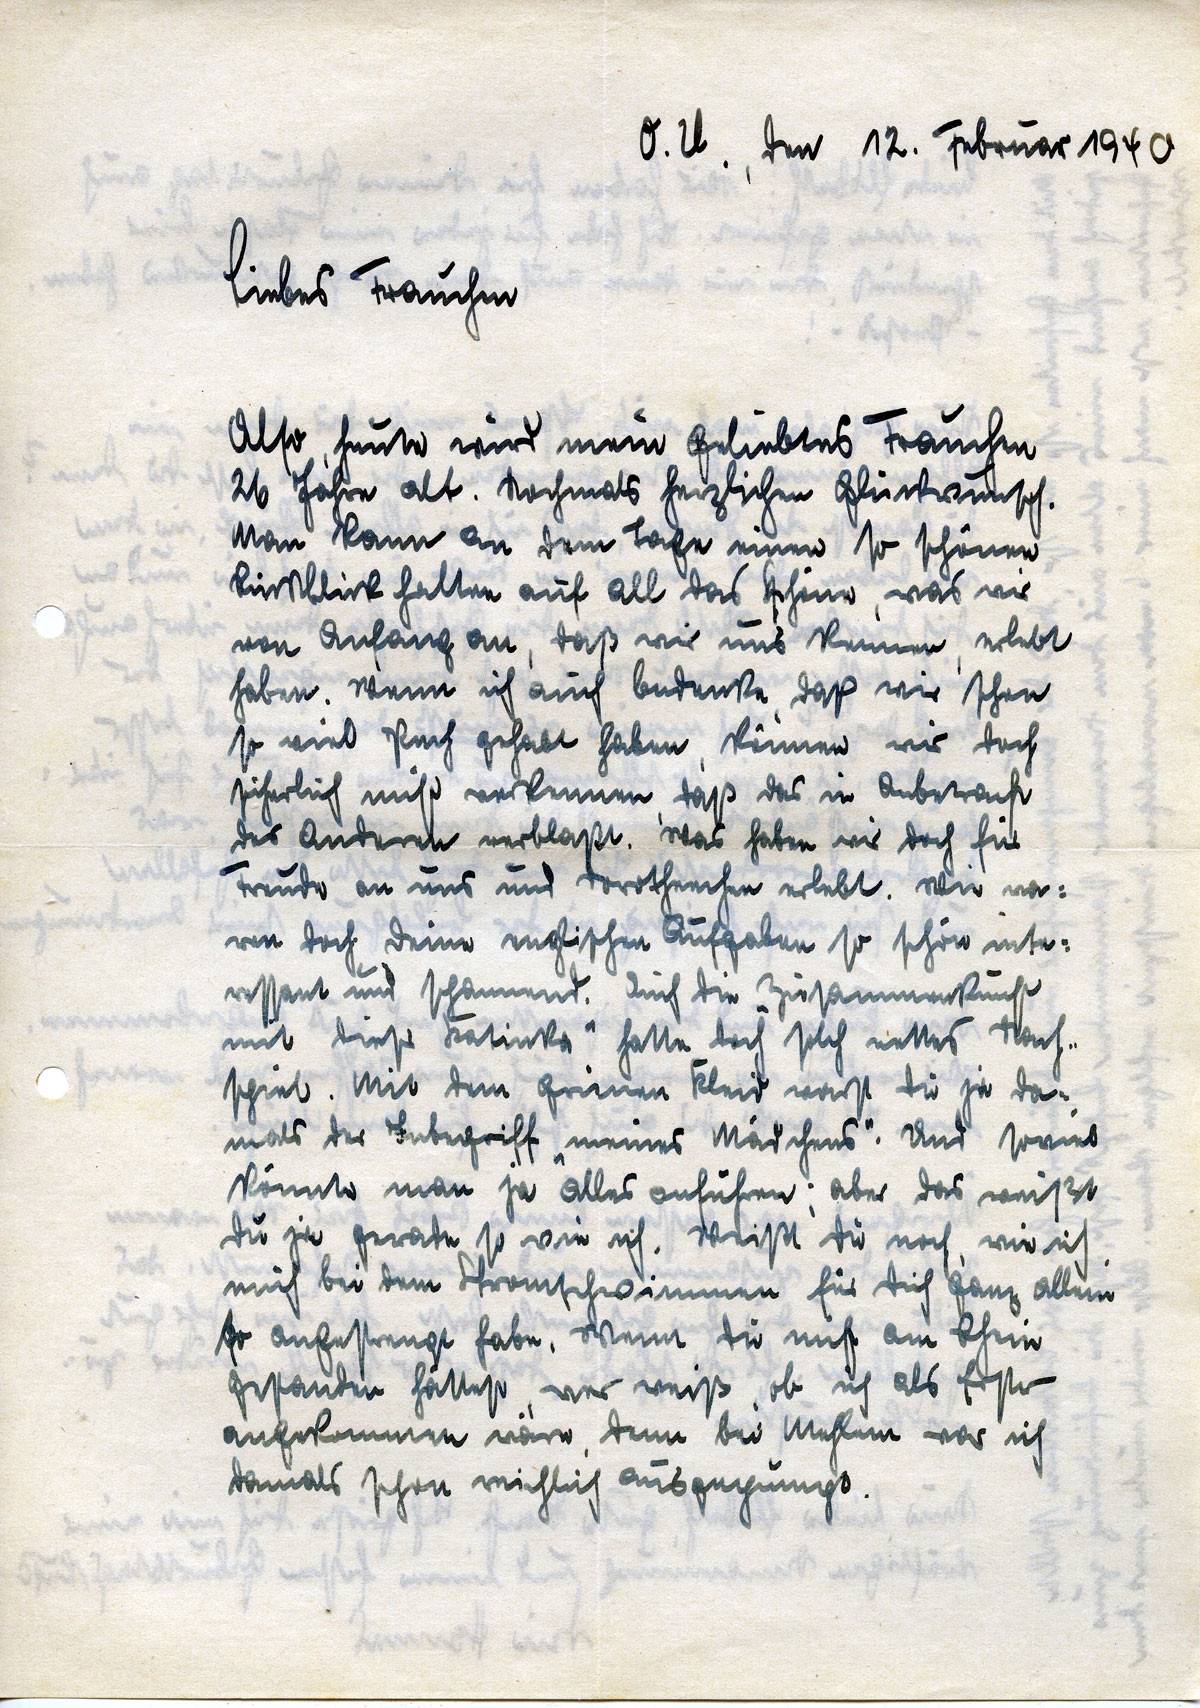 O.U., den 12. Februar 1940
Liebes Frauchen
Also, heute wird mein geliebtes Frauchen
26 Jahre alt. Nochmals herzlichen Glückwunsch.
Man kann an dem Tage einen so schönen
Rückblick halten auf all das Schöne, was wir
von Anfang an, daß wir uns kennen, erlebt
haben. Wenn ich auch bedenke, daß wir schon
so viel Pech gehabt haben, können wir doch
sicherlich nicht verkennen, daß das in Anbetracht
des Anderen verblaßt. Was haben wir doch für
Freude an uns und Dorotheechen erlebt. Wie wa=
ren doch Deine englischen Aufgaben so schön inte=
ressant und spannend. Auch die „Zusammenkunft
mit dieser Katinka“ hatte doch solch nettes Nach=
spiel. Mit dem grünen Kleid warst Du ja da=
mals der Inbegriff „meines Mädchens“. Und soviel
könnte man ja alles anführen; aber das weißt
Du ja gerade so wie ich. Weißt Du noch, wie ich
mich bei dem Stromschwimmen für Dich ganz allein
so angestrengt habe. Wenn Du nicht am Rhein
gestanden hättest, wer weiß, ob ich als Erster
angekommen wäre, denn bei Mehlem war ich
damals schon reichlich ausgepumpt.